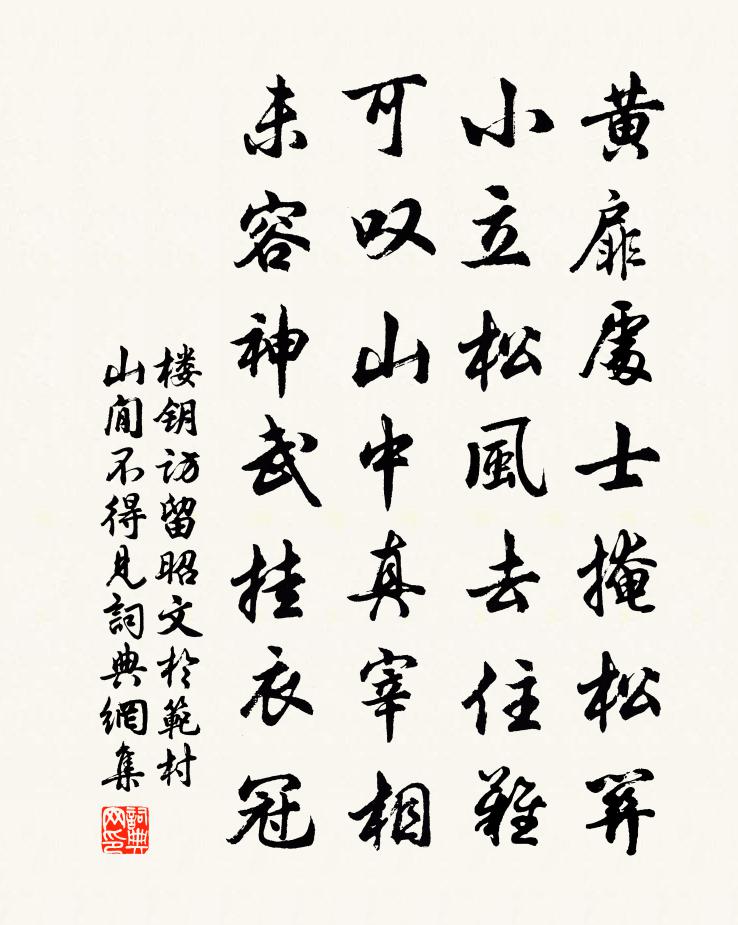 黄扉處士掩松關
小立松風去住難
可叹山中真宰相
未容神武挂衣冠
楼钥访留昭文於範村
山間不得見詞典網集
詞典网印